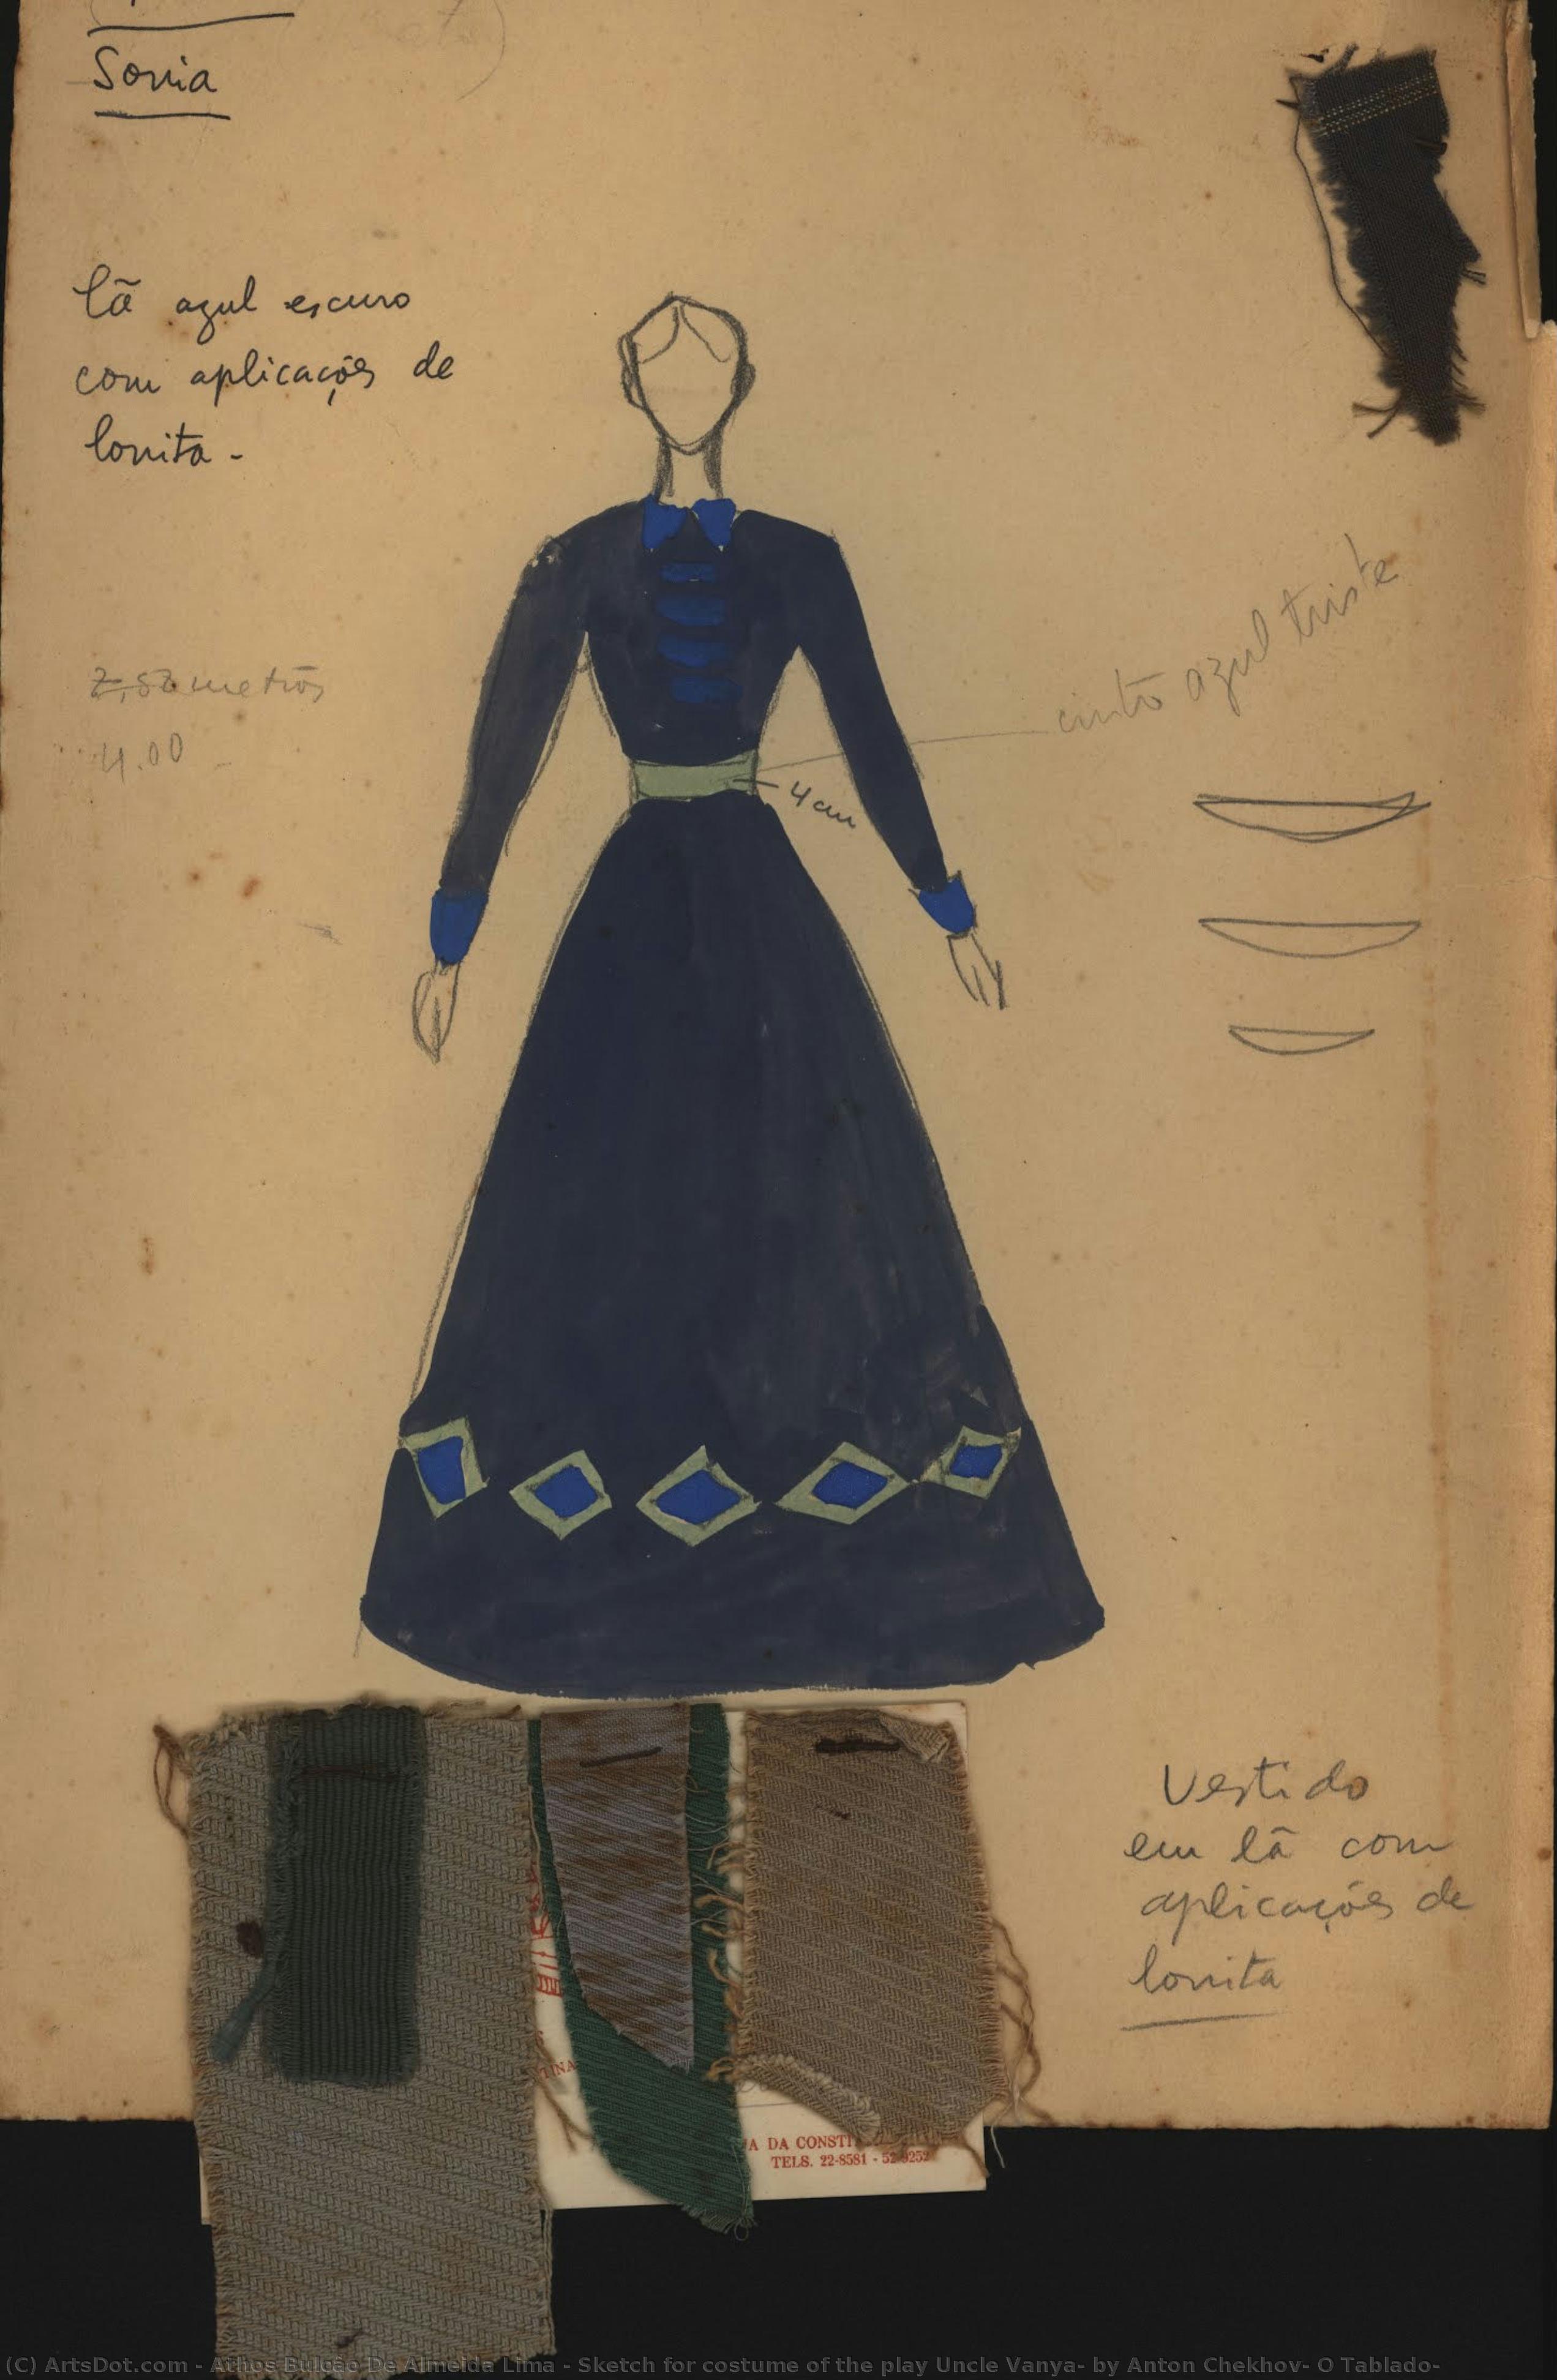 Sonia
lã azul escuro
com aplicações de
lonita -
cinto azul triste
metros
4.00
4 cm
Vestido
em lã com
aplicações de
lonita
TINA
A DA CONSTI
TELS. 22-8581 - 52-9252
(C) ArtsDot.com - Athos Bulcão De Almeida Lima - Sketch for costume of the play Uncle Vanya- by Anton Chekhov- O Tablado-